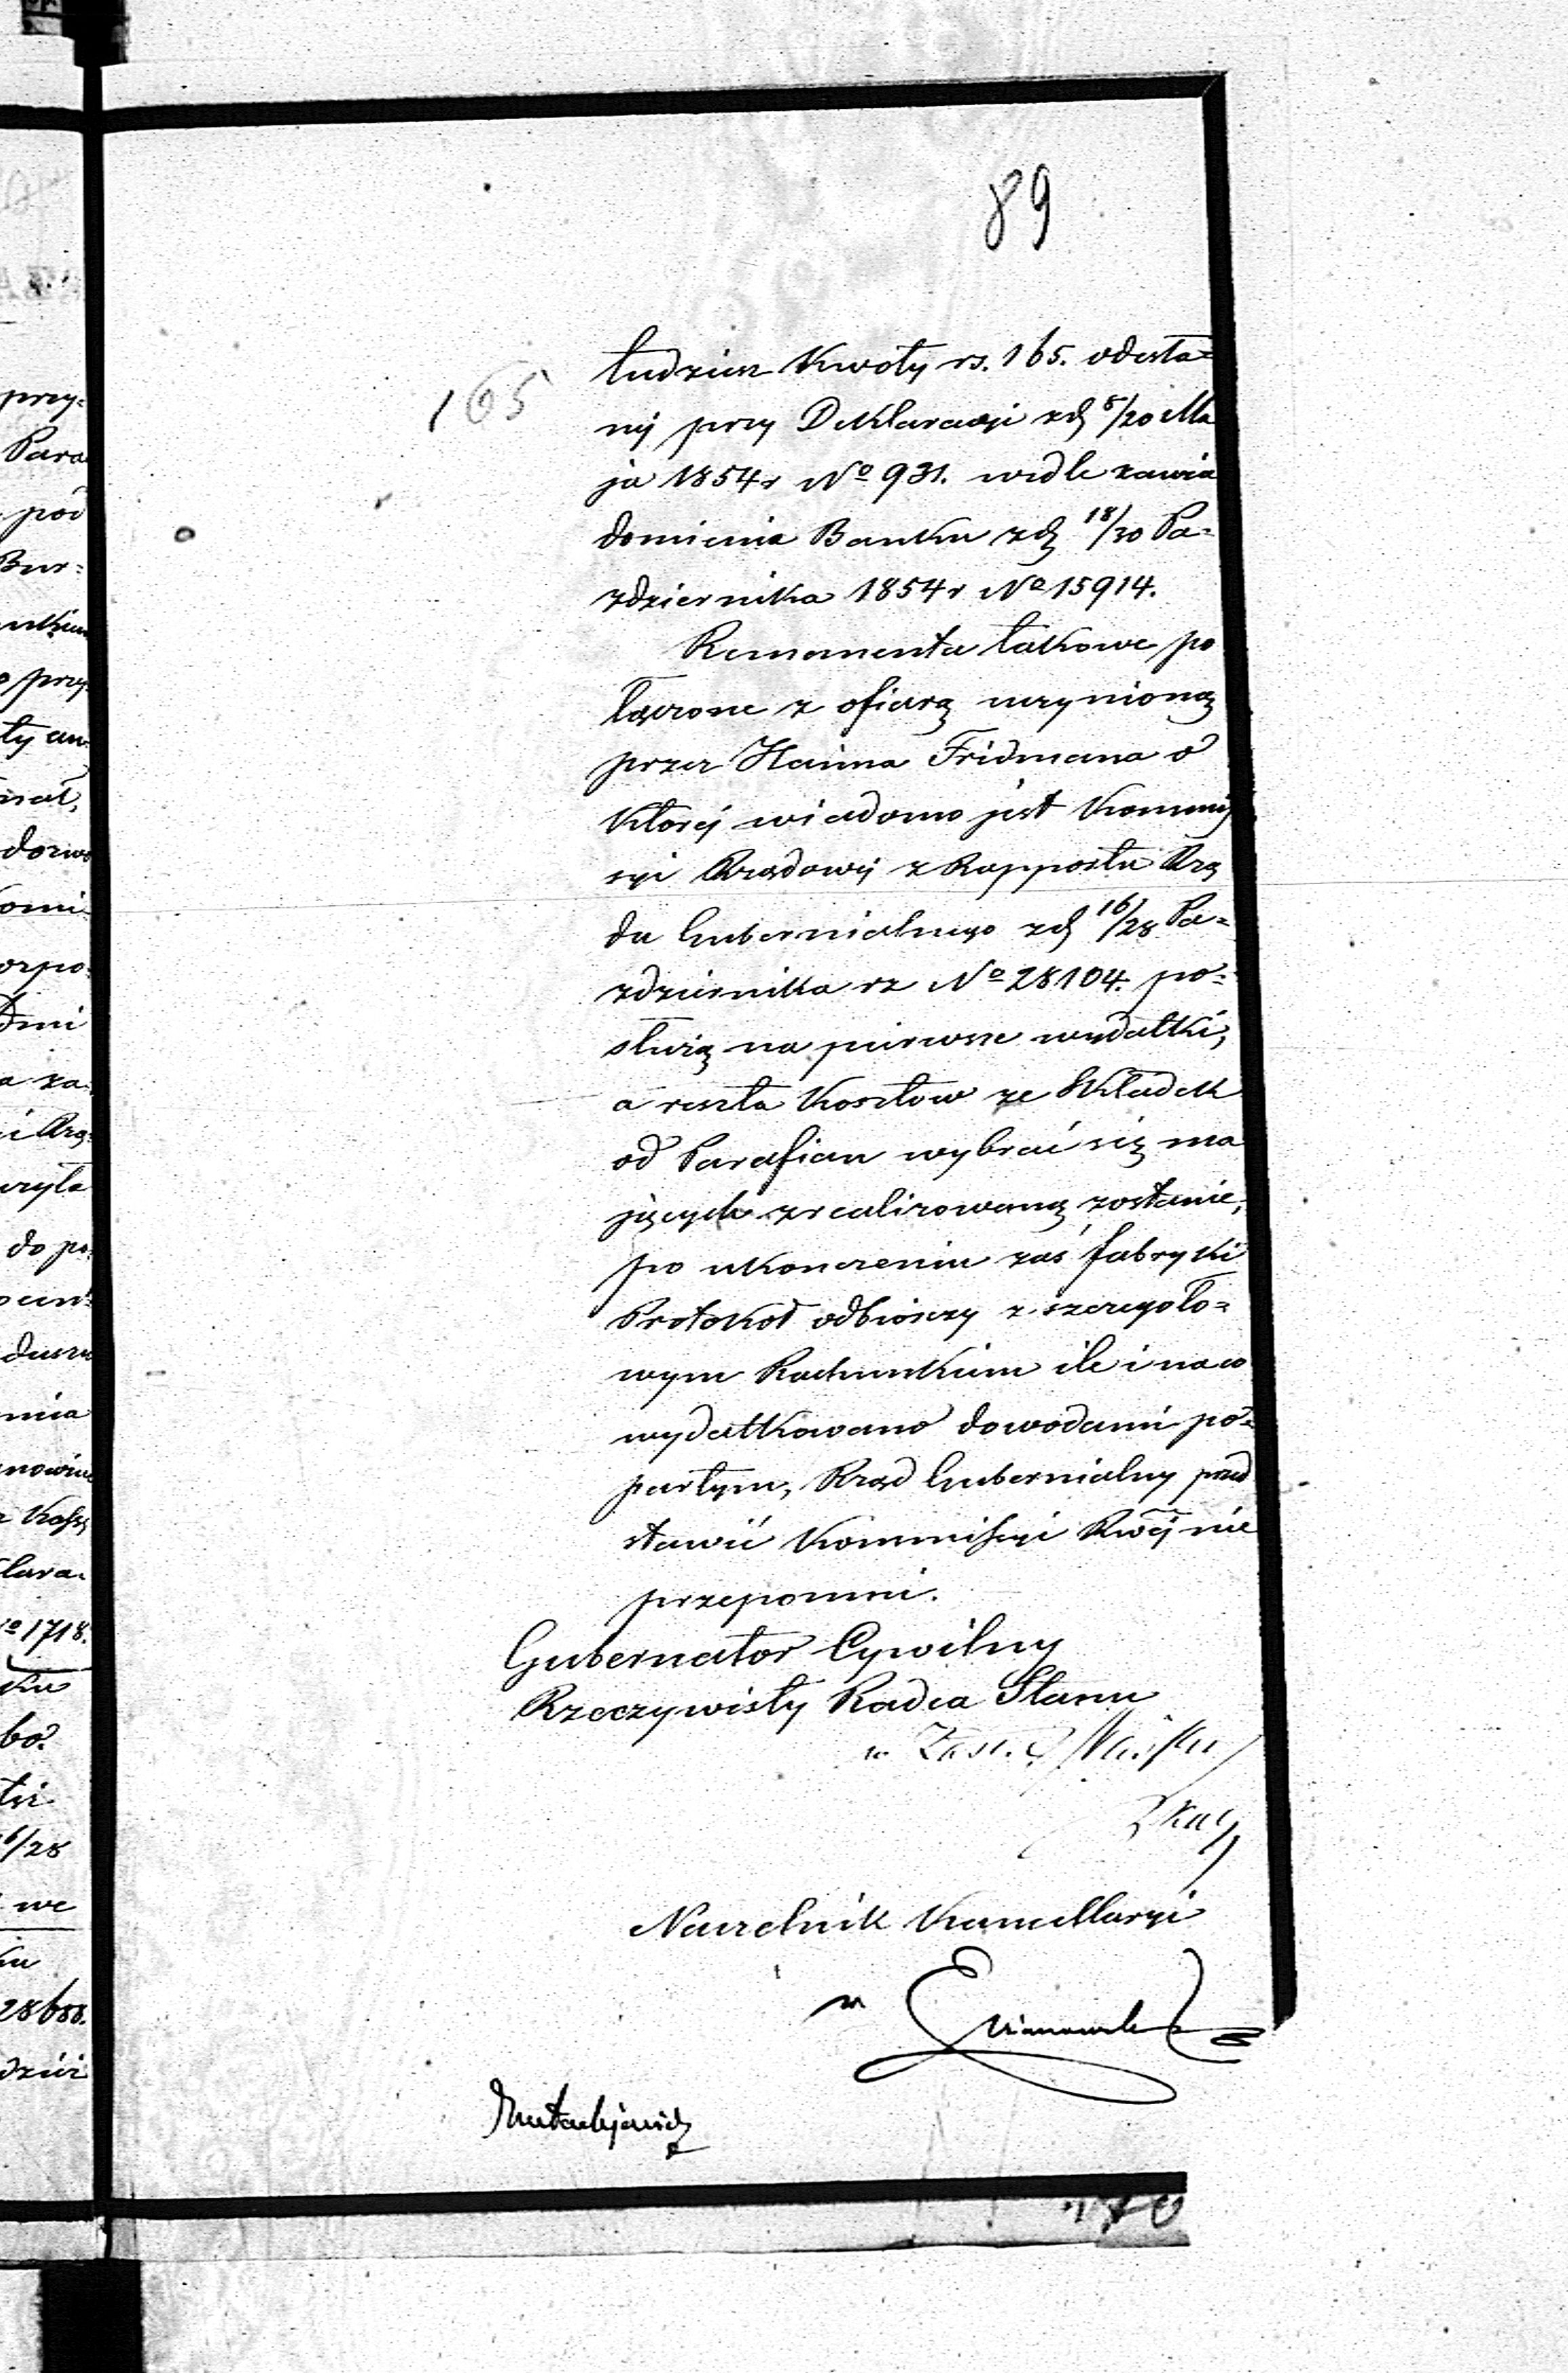 89
165
tudzież Kwoty rs. 165. odesła=
néj przy Deklaracyi z d 8/20 Ma
ja 1854 r No 931. wedle zawia
domienia Banku z d 18/30 Pa=
zdziernika 1854 r No 15914.
Remanenta takowe po
łączone z ofiarą uczynioną
przez Haima Fridmana o
któréj wiadomo jest Kommis
syi Rządowéj z Rapportu Rzą
du Gubernialnego z d 16/28 Pa=
zdziernika rz No 28104. po=
służą na pierwsze wydatki,
a reszta Kosztów ze Składek
od Parafian wybrać się ma
jących zrealizowaną zostanie,
po ukonczeniu zaś fabryki
Protokół odbiorczy z szczegóło=
wym Rachunkiem ile i na co
wydatkowano dowodami po=
partym, Rząd Gubernialny przed
stawić Kommissyi Rwéj nie
przepomni.
Gubernator Cywilny
Rzeczywisty Radca Stanu
Naczelnik Kancellaryi
przy=
Para
pod
Bur=
przy
doswo
a za
i Rzą=
czyła
do po
nia
Kassy
lara=
No 1718.
6/28
we
28688.